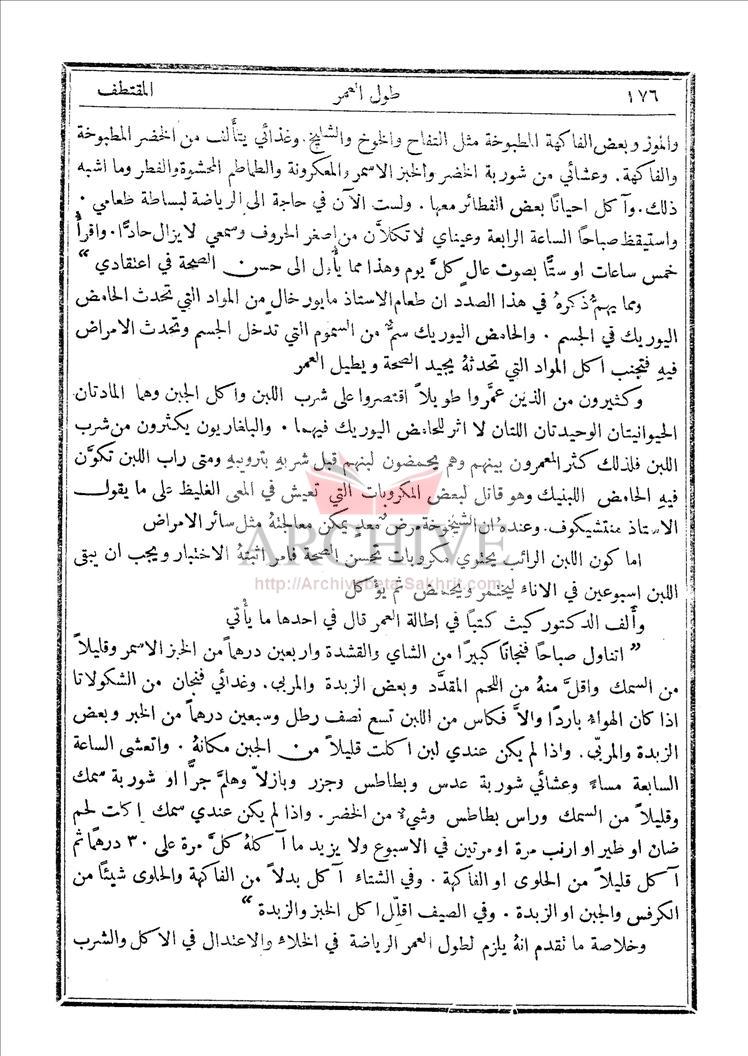 ١٧٦ طول العمر المقتطف
والموز وبعض الفاكهة المطبوخة مثل التفاح والخوخ والشليخ. وغذائي يتأَلف من الخضر المطبوخة
والفاكهة. وعشائي من شوربة الخضر والخبز الاسمر والمعكرونة والطماطم المحشوة والفطر وما اشبه
ذلك. وآكل احيانًا بعض الفطائر معها. ولست الآن في حاجة الى الرياضة لبساطة طعامي.
واستيقظ صباحًا الساعة الرابعة وعيناي لا تكلاَّن من اصغر الحروف وسمعي لا يزال حادًّا. واقرأُ
خمس ساعات او ستًّا بصوت عالٍ كلَّ يوم وهذا مما يأُول الى حسن الصحة في اعتقادي"
ومما يهمُّ ذكرهُ في هذا الصدد ان طعام الاستاذ مايور خالٍ من المواد التي تحدث الحامض
اليوريك في الجسم. والحامض اليوريك سمٌّ من السموم التي تدخل الجسم وتحدث الامراض
فيهِ فتجنب اكل المواد التي تحدثهُ يجيد الصحة ويطيل العمر
وكثيرون من الذين عمَّروا طويلاً اقتصروا على شرب اللبن واكل الجبن وهما المادتان
الحيوانيتان الوحيدتان اللتان لا اثر للحامض اليوريك فيهما. والبلغاريون يكثرون من شرب
اللبن فلذلك كثر المعمرون بينهم وهم يحمضون لبنهم قبل شربهِ بترويبهِ ومتى راب اللبن تكوَّن
فيهِ الحامض اللبنيك وهو قاتل لبعض المكروبات التي تعيش في المعى الغليظ على ما يقول
الاستاذ منتشيكوف. وعندهُ ان الشيخوخة مرض معدٍ يمكن معالجتهُ مثل سائر الامراض
ARCHIVE
اما كون اللبن الرائب يحتوي مكروبات تحسن الصحة فامر اثبتهُ الاختبار ويجب ان يبقى
http://Archivebeta.Sakhrit.com
اللبن اسبوعين في الاناء ليختمر ويحمض ثم يؤكل
وأَلف الدكتور كيث كتبًا في اطالة العمر قال في احدها ما يأْتي
"اتناول صباحًا فنجانًا كبيرًا من الشاي والقشدة واربعين درهمًا من الخبز الاسمر وقليلاً
من السمك واقلَّ منهُ من اللحم المقدَّد وبعض الزبدة والمربى. وغدائي فنجان من الشكولاتا
اذا كان الهواء باردًا والاَّ فكاس من اللبن تسع نصف رطل وسبعين درهمًا من الخبز وبعض
الزبدة والمربَّى. واذا لم يكن عندي لبن اكلت قليلاً من الجبن مكانهُ. واتعشى الساعة
السابعة مساءً وعشائي شوربة عدس وبطاطس وجزر وبازلاَّ وهلمَّ جرًّا او شوربة سمك
وقليلاً من السمك وراس بطاطس وشيء من الخضر. واذا لم يكن عندي سمك اكلت لحم
ضان او طير او ارنب مرة او مرتين في الاسبوع ولا يزيد ما آكلهُ كلَّ مرة على ٣٠ درهمًا ثم
آكل قليلاً من الحلوى او الفاكهة. وفي الشتاء آكل بدلاً من الفاكهة والحلوى شيئًا من
الكرفس والجبن او الزبدة. وفي الصيف اقلِّل اكل الخبز والزبدة"
وخلاصة ما تقدم انهُ يلزم لطول العمر الرياضة في الخلاء والاعتدال في الاكل والشرب